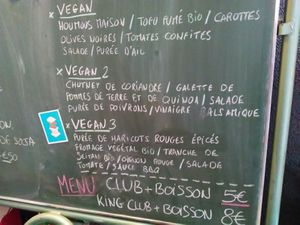 x VEGAN
HOUMOUS MAISON / TOFU FUMÉ BIO / CAROTTES
OLIVES NOIRES / TOMATES CONFITES
SALADE / PURÉE D'AIL
x VEGAN 2
CHUTNEY DE CORIANDRE / GALETTE DE
POMMES DE TERRE ET DE QUINOA / SALADE
PURÉE DE POIVRONS / VINAIGRE BALSAMIQUE
x VEGAN 3
PURÉE DE HARICOTS ROUGES ÉPICÉS
FROMAGE VÉGÉTAL BIO / TRANCHE DE
SEITAN BIO / OIGNON ROUGE / SALADE
TOMATE / SAUCE BBQ
MENU CLUB + BOISSON 5€
KING CLUB + BOISSON 8€
DE SOJA
€50